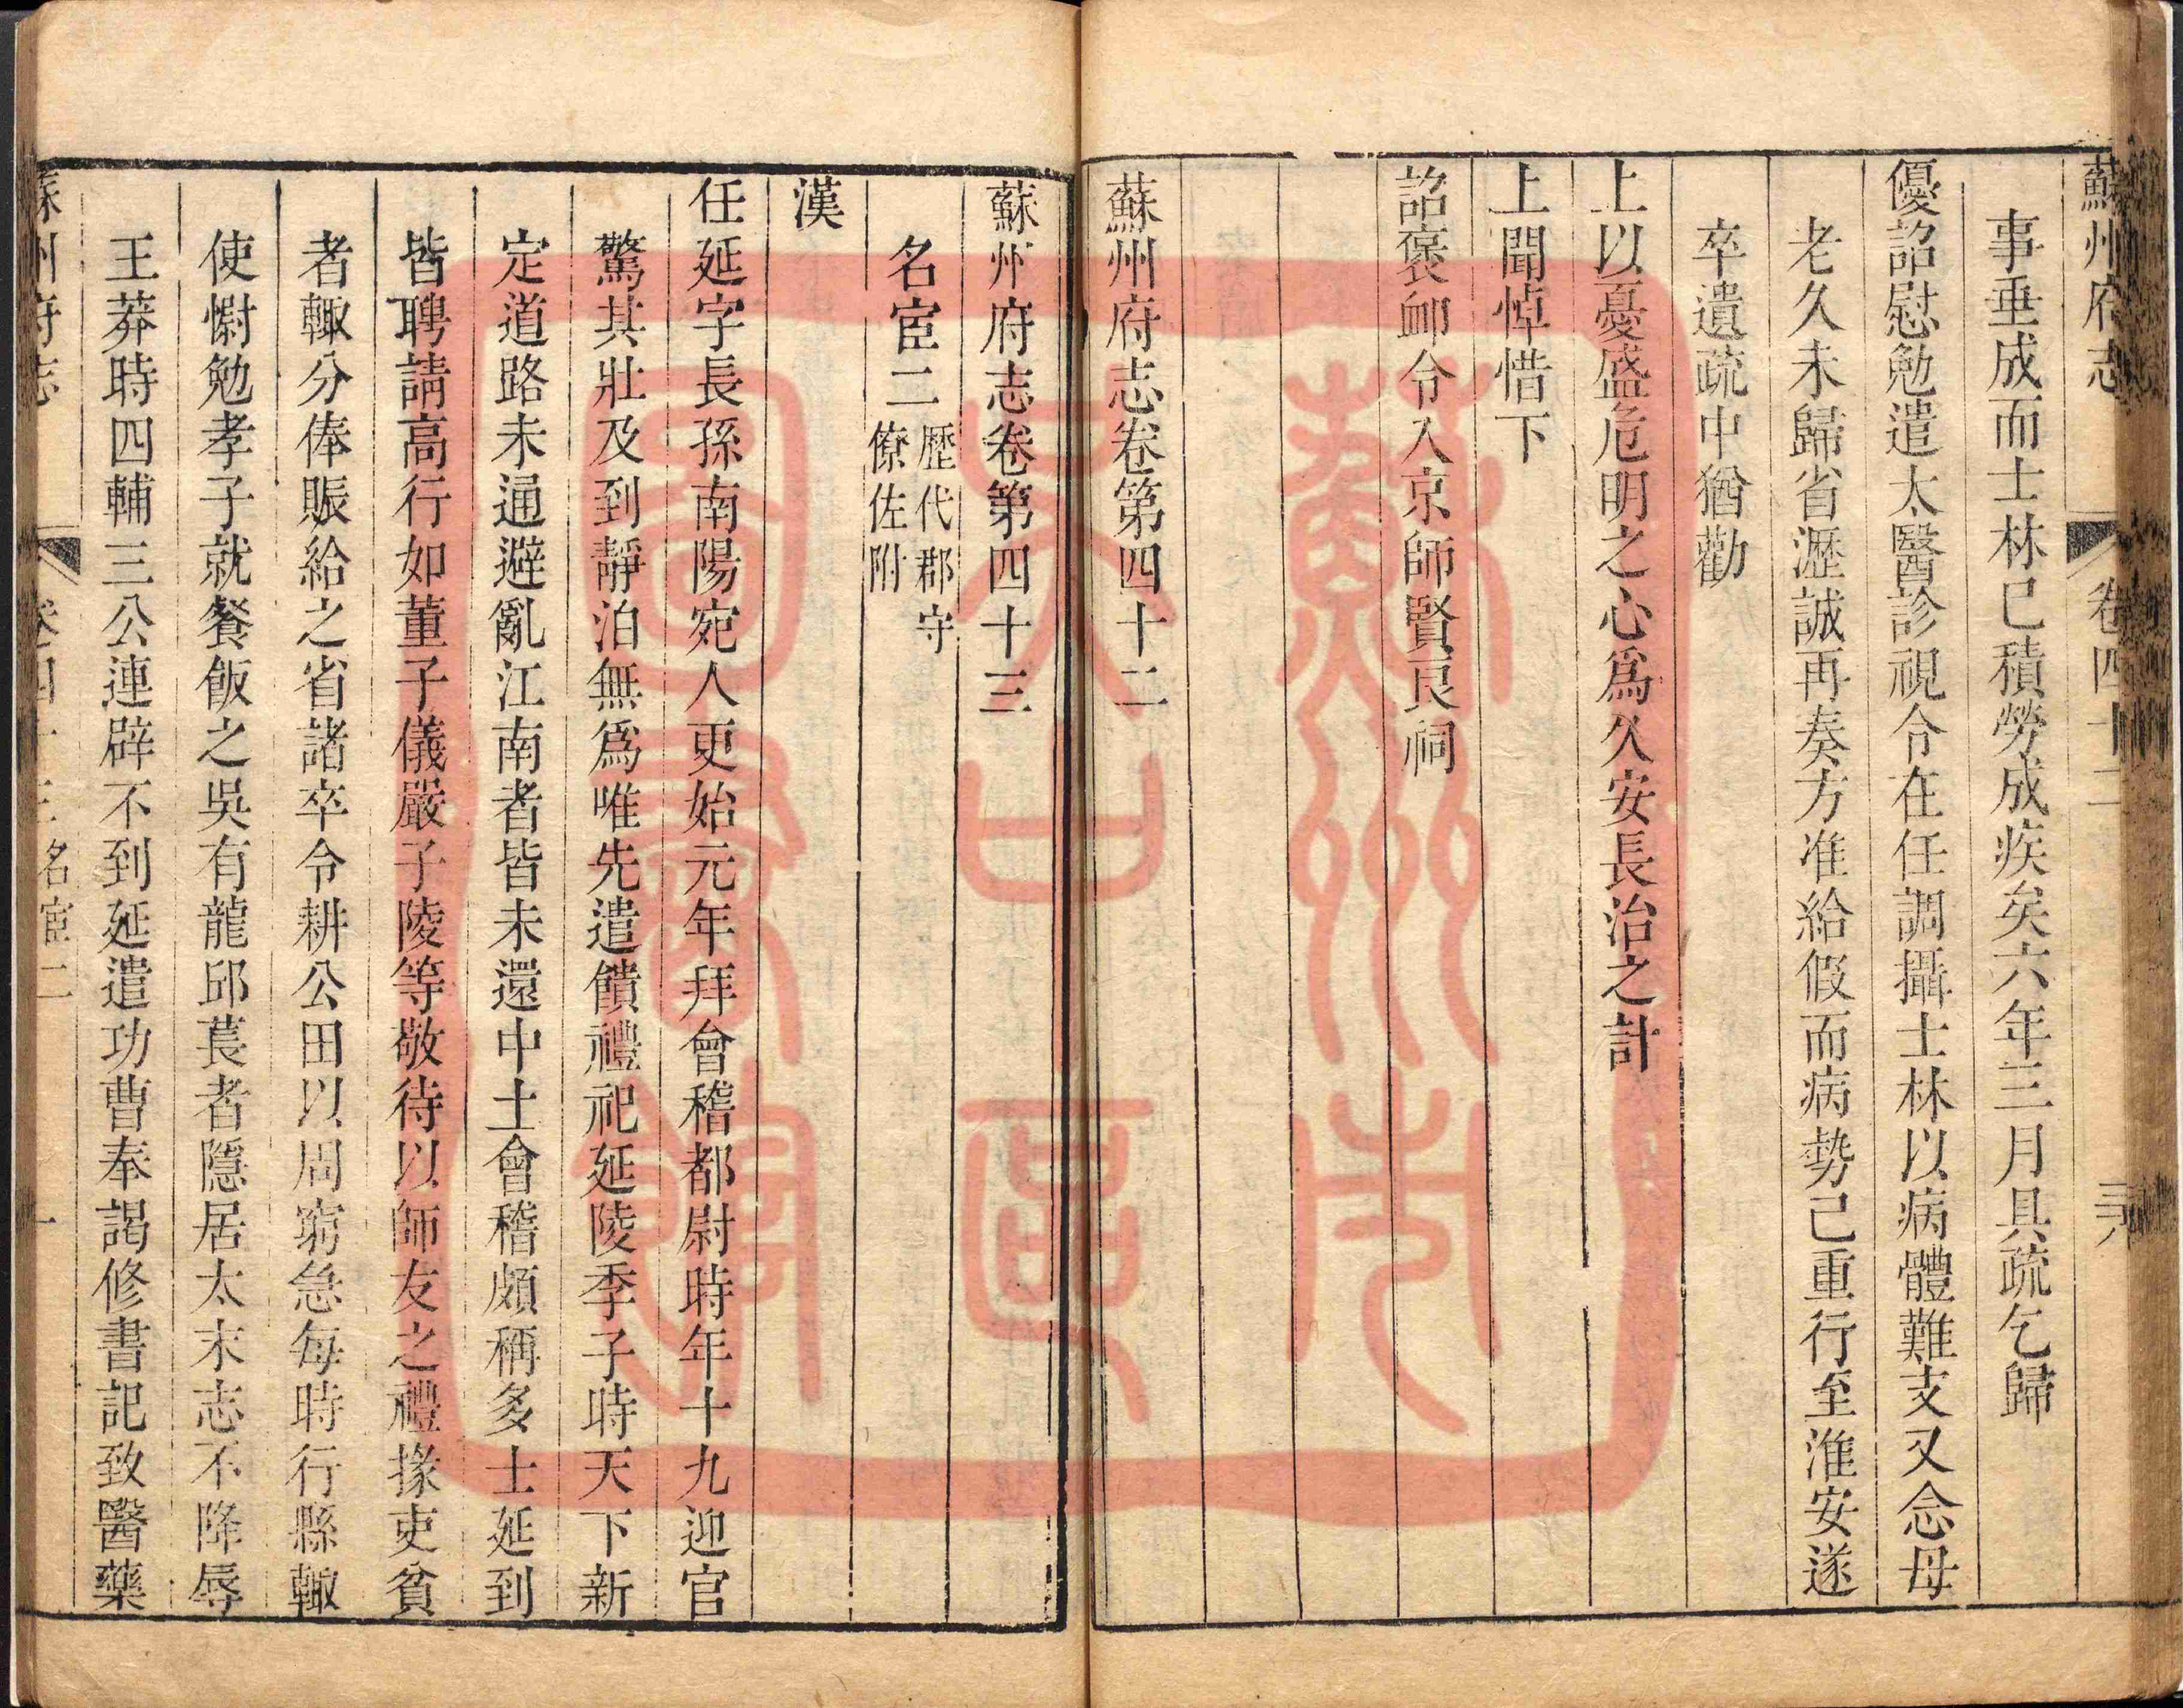 蘇州府志 卷四十二 三六
事垂成而士林已積勞成疾矣六年三月具疏乞歸
優詔慰勉遣太醫診視令在任調攝士林以病體難支又念母
老久未歸省瀝誠再奏方准給假而病勢己重行至淮安遂
卒遺疏中猶勸
上以憂盛危明之心爲久安長治之計
上聞悼惜下
詔褒卹令入京師賢良祠
蘇州府志卷第四十二
蘇州府志卷第四十三
名宦二歷代郡守
僚佐附
漢
任延字長孫南陽宛人更始元年拜會稽都尉時年十九迎官
驚其壯及到靜泊無爲唯先遣饋禮祀延陵季子時天下新
定道路未通避亂江南者皆未還中土會稽頗稱多士延到
皆聘請高行如董子儀嚴子陵等敬待以師友之禮掾吏貧
者輙分俸賑給之省諸卒令耕公田以周窮急每時行縣輙
使慰勉孝子就餐飯之吳有龍邱萇者隱居太末志不降辱
王莽時四輔三公連辟不到延遣功曹奉謁修書記致醫藥
蘇州府志 卷四十三 名宦二 一
蘇州市
文七西
圖